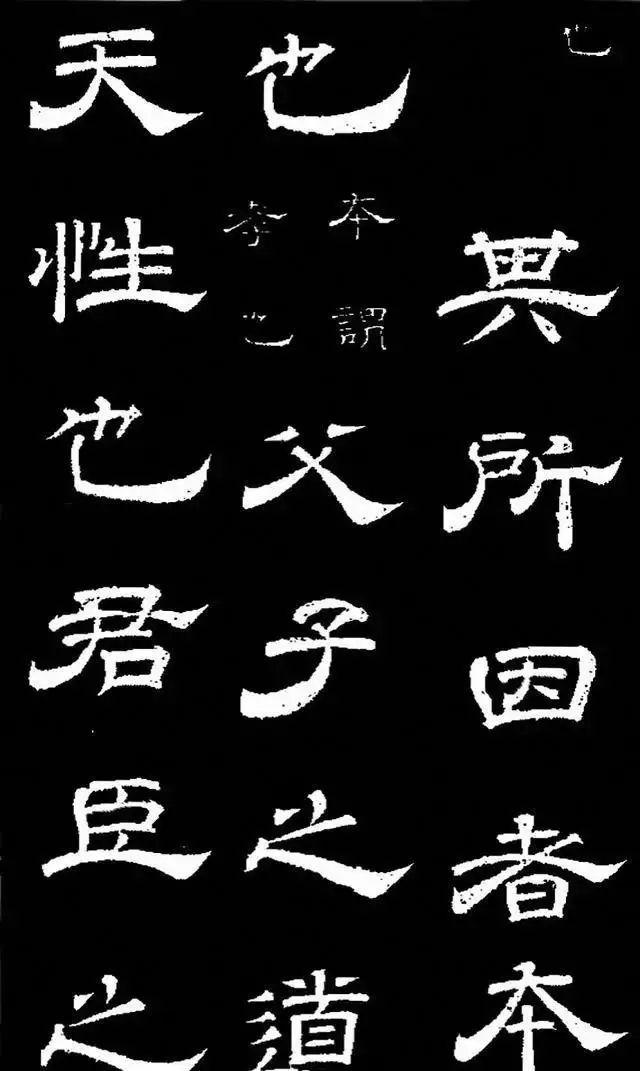 也其所因者本
也本謂孝也父子之道
天性也君臣之